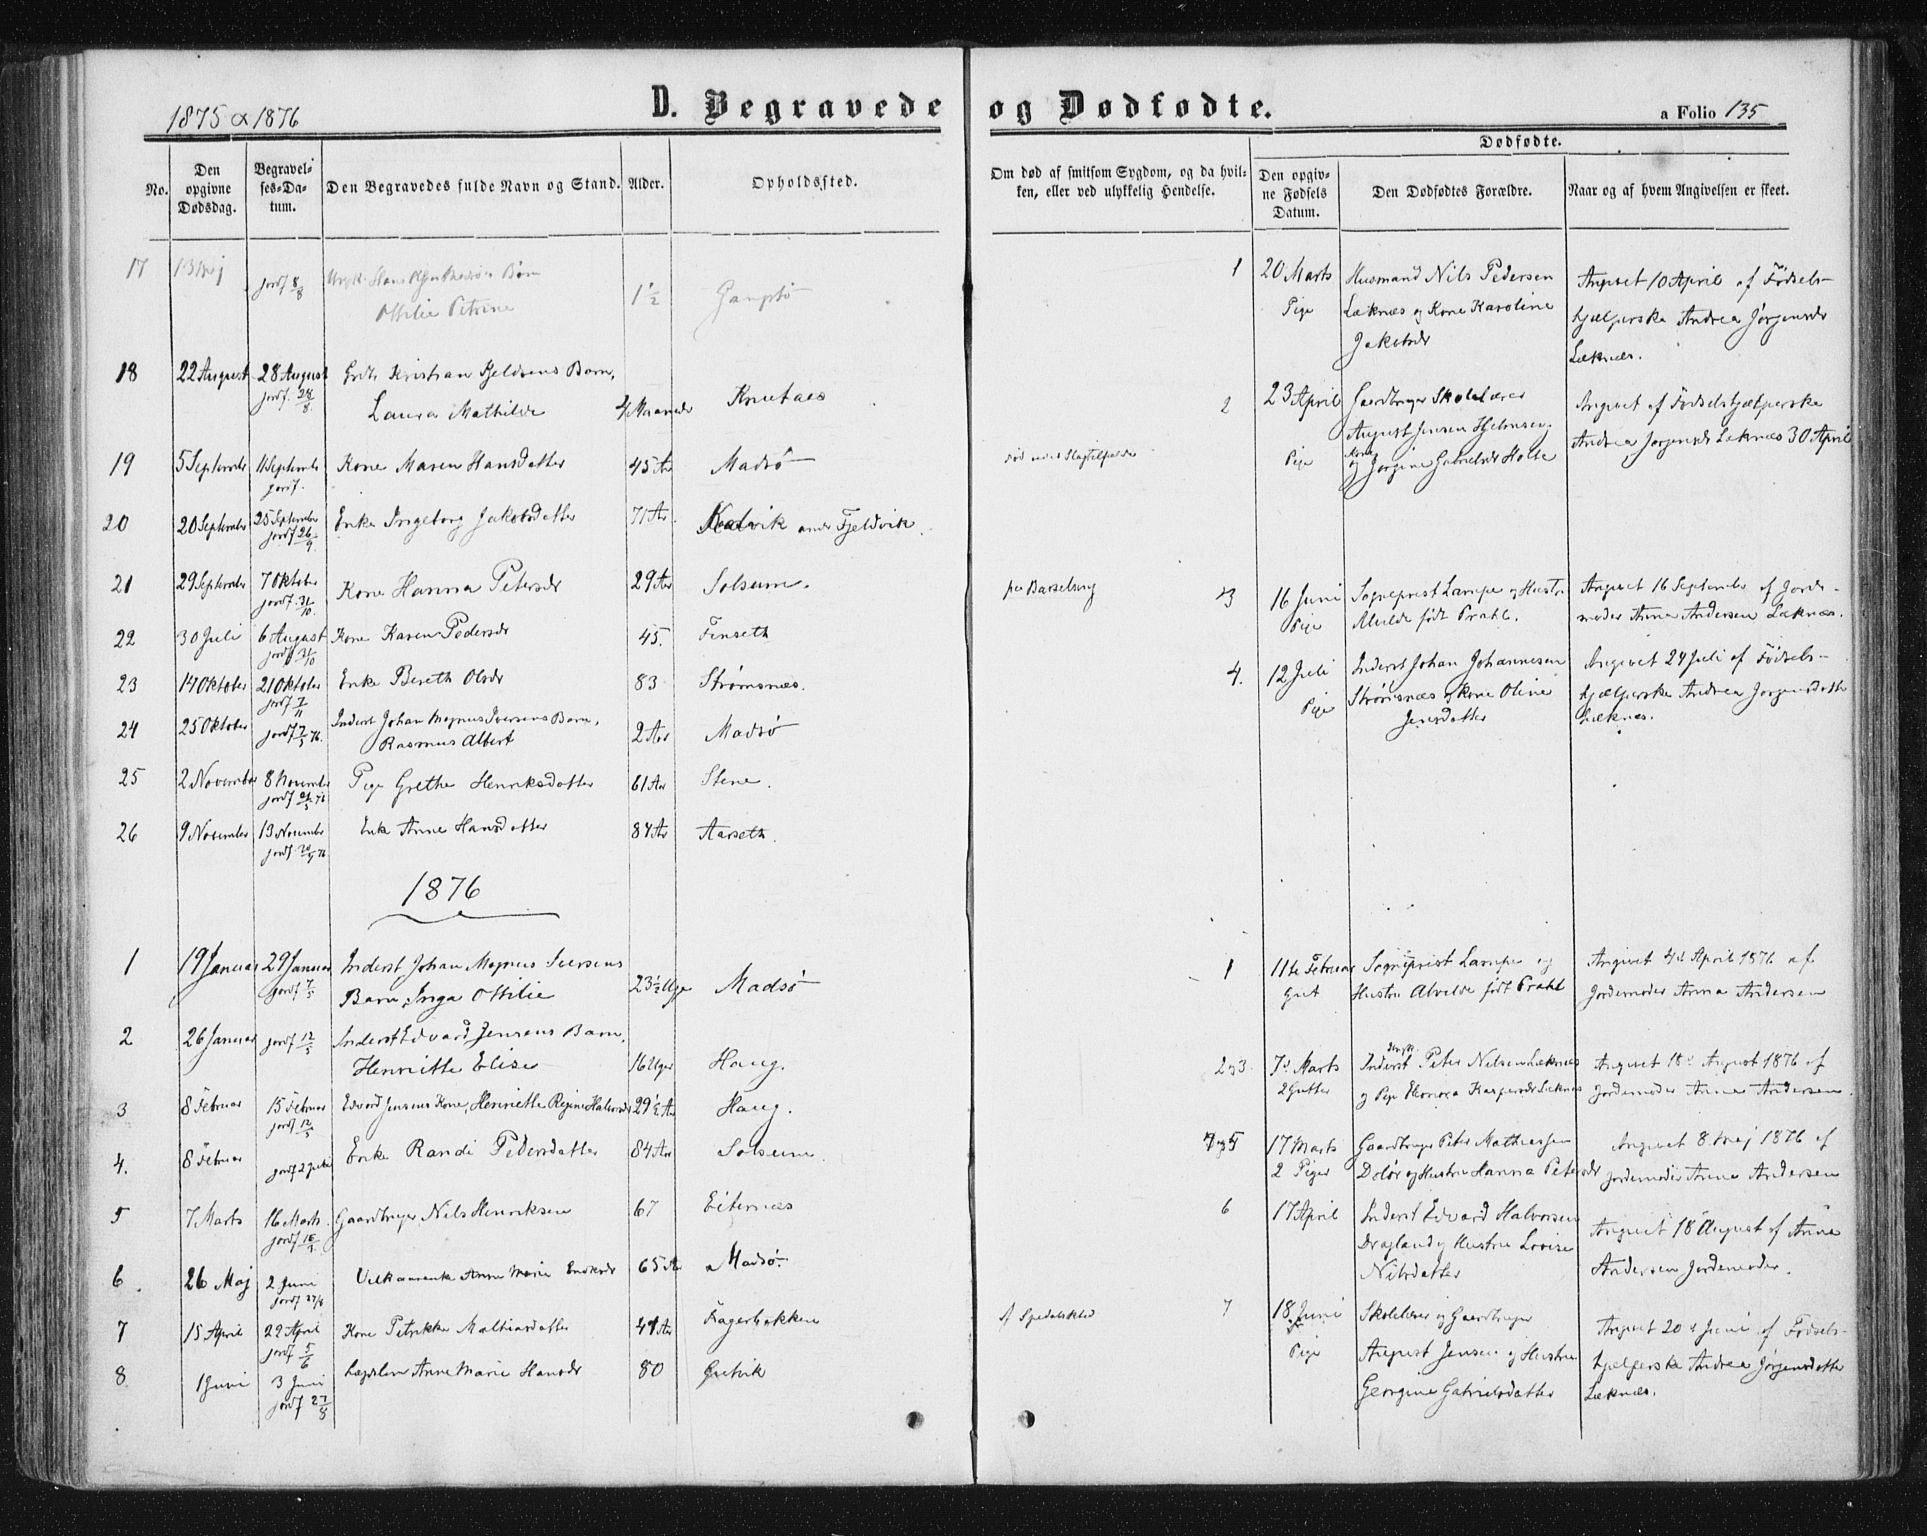 1875 & 1876
D. Begravede og Dødfødte.
a Folio 135
No.
Den opgivne Dødsdag.
Begravelses-Datum.
Den Begravedes fulde Navn og Stand.
Alder.
Opholdssted.
Om død af smitsom Sygdom, og da hvilken, eller ved ulykkelig Hendelse.
Dødfødte.
Den opgivne Fødsels Datum.
Den Dødfødtes Forældre.
Naar og af hvem Angivelsen er skeet.
17 13 Maj jordf 8/8 Barn 1½
Ottilie Petrine
18 22 August 28 August Kristian Kjeldsens Barn,
jordf. 28/8. Laura Mathilde 4 Maaneder
19 5 September 11 September Kone Maren Hansdatter 45 Aar Madsø
jordf.
20 20 September 25 September Enke Ingeborg Jakobsdatter 71 Aar Fjeldvik
jordf 26/9.
21 29 September 7 Oktober Kone Hanna Petersdr 29 Aar Solsem. Barselseng
jordf. 31/10.
22 30 Juli 6 August Kone Karen Pedersdr 45. Finseth
jordf 31/10
23 14 Oktober 21 Oktober Enke Bereth Olsdr 83 Strømsnæs.
jordf 7/11
24 25 Oktober Inderst Johan Magnus Iversens Barn, 2 Aar Madsø
jordf 7/5 76. Rasmus Albert
25 2 November 8 November Pige Grethe Henriksdatter 61 Aar Stene.
jordf 21/5 76
26 9 November 13 November Enke Anne Hansdatter 84 Aar Aarseth.
jordf 76
1876
1 19 Januar 29 Januar Inderst Johan Magnus Iversens
jordf 7/5 Barn, Inga Ottilie 23½ Uge Madsø
2 26 Januar jordf 12/5 Inderst Edvard Jensens Barn,
Henriette Elise 16 Uger Haug.
3 8 Februar 15 Februar Edvard Jensens Kone, Henriette Regine Halvorsdr 29 Aar Haug.
jordf 12/5
4. 8 Februar jordf 2 Juli Enke Randi Pedersdatter 84 Aar Solsem.
5 7 Marts 16 Marts Gaardbruger Nils Henriksen 67 Eiternæs
jordf
6 26 Maj 2 Juni Anne Marie 65 Aar Madsø
jordf 27/6
7 15 April 22 April Kone Petrikke Mathiasdatter 41 Aar Fagerbakken af Spedalskhed
jordf 5/6
8 1 Juni 3 Juni Anne Marie Hansdr 80
jordf 27/8
1 20 Marts Husmand Nils Pedersen Angivet 10 April af Fødsels-
Pige Læknæs og Kone Karoline hjælperske Andrea Jørgensdr
Jakobsdr Læknæs.
2 23 April Gaardbruger Skolelærer Angivet af Fødselshjælperske
August Jensen Andrea Jørgensdr Læknæs 30 April
Pige og Kone Jørgine Gabrielsdr
3 16 Juni Sogneprest Lampe og Hustru Angivet 16 September af Jorde-
Pige Alvilde født Prahl. moder Anna Andersen Læknæs.
4. 12 Juli Inderst Johan Johannesen Angivet 24 Juli af Fødsels-
Pige Strømsnæs og Kone Oline hjælperske Andrea Jørgensdatter
Jensdatter Læknæs.
1 11te Februar Sogneprest Lampe og Angivet April 1876 af
Gut Hustru Alvilde født Prahl Jordemoder Anna Andersen
2 og 3 7d Marts Inderst Peter Nilsen Læknæs Angivet 18d August 1876 af
2 Gutter og Pige Eleonora Kaspersdr Læknæs Jordemoder Anna Andersen
4 og 5 17 Marts Gaardbruger Peter Mathiassen Angivet 8 Maj 1876 af
2 Piger og Hustru Hanna Petersdr Jordemoder Anna Andersen
6 17 April Inderst Edvard Halvorsen Angivet 18 August af Anna
Dragland og Hustru Lovise Andersen Jordemoder.
Nilsdatter
7 18 Juni Skolelærer og Gaardbruger Angivet 20d Juni af Fødsels-
Pige August Jensen og Hustru hjælperske Andrea Jørgensdatter
Georgine Gabrielsdatter Læknæs.